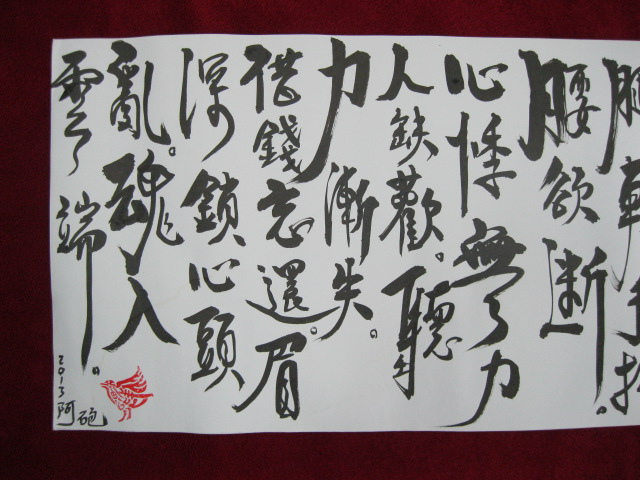 手抖。
腰欲斷
心悸無力
人缺歡。聽
力漸失。
借錢忘還。眉
深鎖心頭
亂。魂入
雲端。
2013阿砲